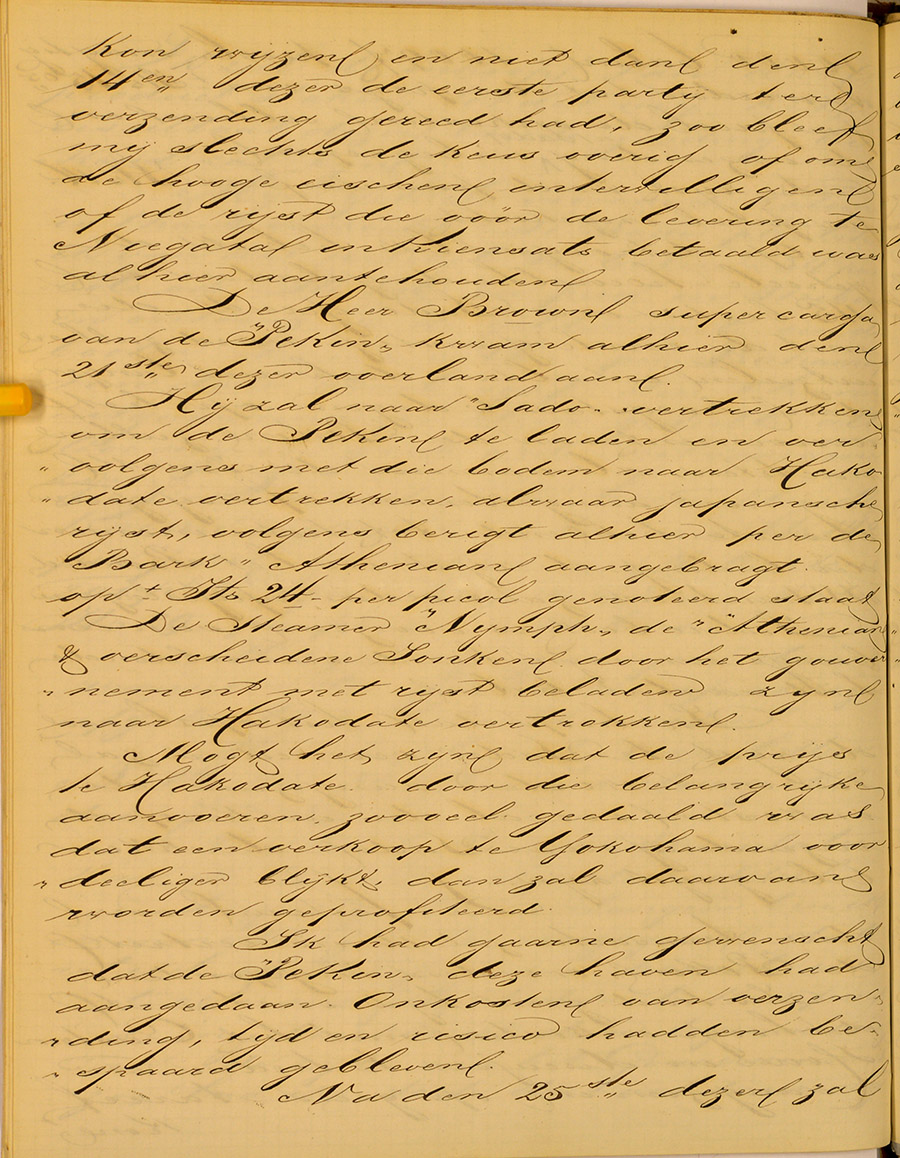 kon wijzen en niet dan den
14en dezer de eerste party ter
verzending gereed had, zoo bleef
mij slechts de keus overig of om
de hooge eischen intewilligen
of de rijst die vóór de levering te
Niegatal in Kiensats betaald was
alhier aantehouden
De Heer Brown supercarga
van de "Pekin" kwam alhier den
21ste dezer overland aan.
Hij zal naar "Sado" vertrekken
om de Pekin te laden en ver
"volgens met die bodem naar Hako
"date vertrekken, alwaar japansche
rijst, volgens berigt alhier per de
Bark "Athenian aangebragt
op ± Ito 24 - per picol genoteerd staat
De Steamer "Nymph", de "Athenian
& verscheidene Jonken door het gouver
"nement met rijst beladen zyn
naar Hakodate vertrokken.
Mogt het zijn dat de prijs
te Hakodate door die belangrijke
aanvoeren, zooveel gedaald was
dat een verkoop te Yokohama voor
"deeliger blijkt, dan zal daarvan
worden geprofiteerd.
Ik had gaarne gewenscht
dat de "Pekin" deze haven had
aangedaan. Onkosten van verzen-
"ding, tyd en risico hadden be-
"spaard gebleven.
Na den 25ste dezer zal